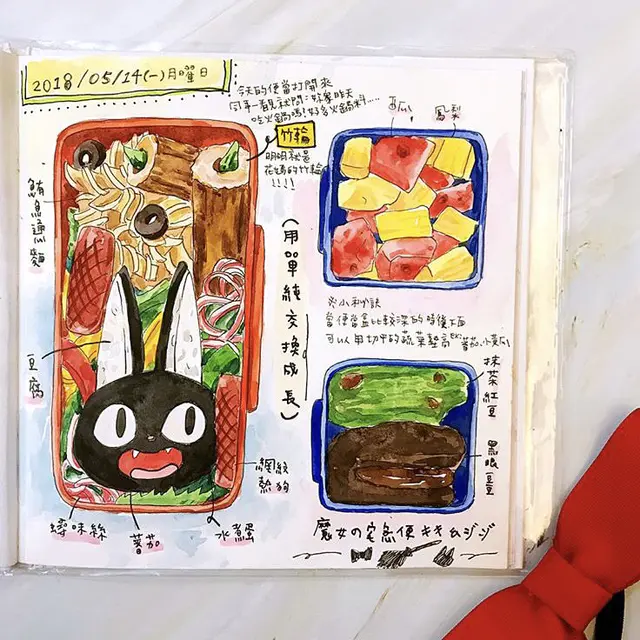 2018/05/14(一)月曜日
今天的便當打開來
同事一看就問:妳家昨天
吃火鍋嗎!好多火鍋料....
竹輪
明明就是
花媽的竹輪
!!!!
西瓜
鳳梨
鮪魚通心麵
(用單純交換成長)
※小秘訣
當便當盒比較深的時候下面
可以用切片的蔬菜墊高ex:番茄、小黃瓜
豆腐
抹茶紅豆
黑眼豆豆
網紋熱狗
蟳味絲
蕃茄
水煮蛋
魔女の宅急便キキ&ジジ